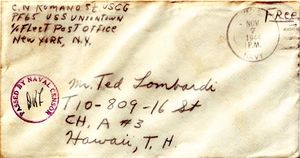 C.N. ROMANO S2/c USCG
PF65 USS UNIONTOWN
c/o FLEET POST OFFICE
NEW YORK, N.Y.
NOV
7
1944
P.M.
NAVY
FREE
PASSED BY NAVAL CENSOR
Mr. Ted Lombardi
T10-809-16 St
CH. A #3
Hawaii, T. H.